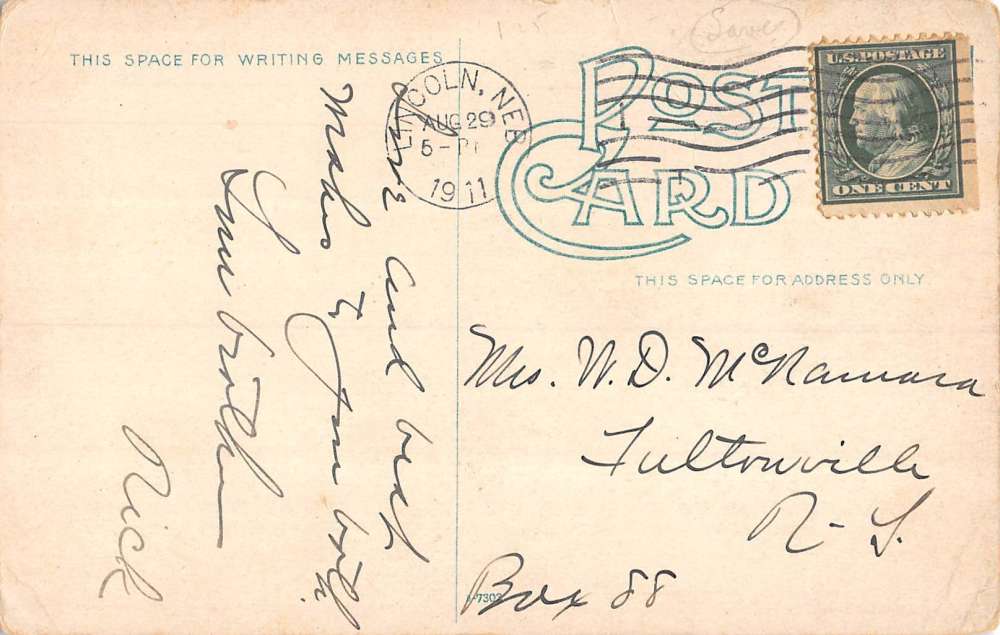 THIS SPACE FOR WRITING MESSAGES
Love and best
wishes to you both
Your brother
Nick
LINCOLN, NEB
AUG 29
5-P
1911
POST CARD
U.S. POSTAGE
ONE CENT
THIS SPACE FOR ADDRESS ONLY
Mrs. W. D. McNamara
Fultonville
N-Y.
Box 88
7302